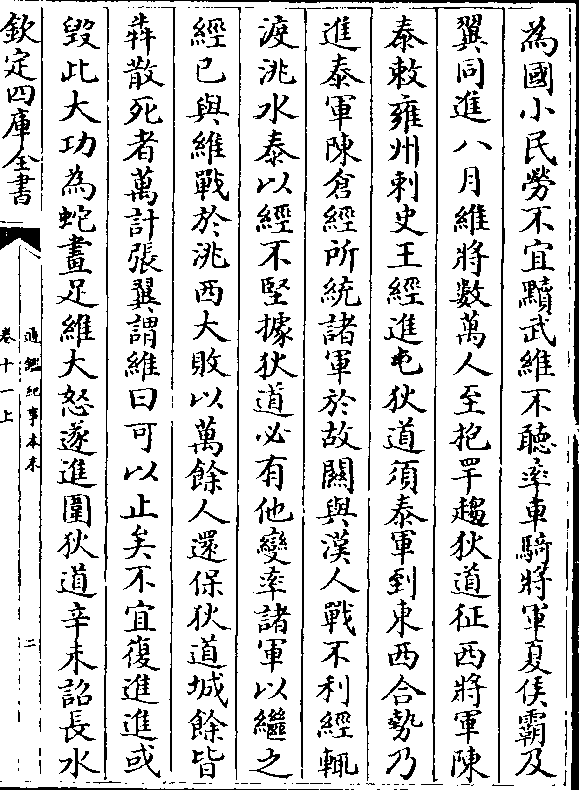 為國小民勞不宜黷武維不聽率車騎將軍夏侯霸及
翼同進八月維將數萬人至抱罕趨狄道征西將軍陳
泰敕雍州刺史王經進屯狄道須泰軍到東西合勢乃
進泰軍陳倉經所統諸軍於故關與漢人戰不利經輒
渡洮水泰以經不堅據狄道必有他變率諸軍以繼之
經已與維戰於洮西大敗以萬餘人還保狄道城餘皆
犇散死者萬計張翼謂維曰可以止矣不宜復進進或
毀此大功為蛇畫足維大怒遂進圍狄道辛未詔長水
欽定四庫全書
通鑑紀事本末
卷十一上
二